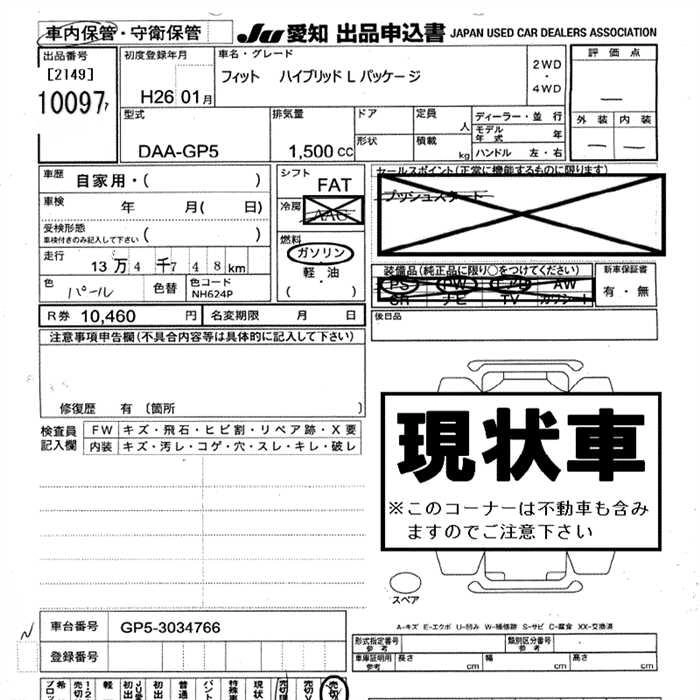 車内保管・守衛保管 JU 愛知 出品申込書 JAPAN USED CAR DEALERS ASSOCIATION
出品番号 初度登録年月 車名・グレード 2WD ・ 4WD 評価点
[2149] フィット ハイブリッド L パッケージ
10097 H26 01月 —
型式 排気量 ドア 定員 人 ディーラー・並行 外装 内装
DAA-GP5 1,500 cc 形状 積載 kg モデル年式 年 — —
ハンドル 左・右
車歴 自家用・( ) シフト FAT セールスポイント(正常に機能するものに限ります)
車検 年 月( 日) 冷房 AAC プッシュスタート
受検形態 車検付きのみ記入して下さい ( ) 燃料 ガソリン
走行 13万4千748km 軽・油
色 パール 色替 色コード NH624P ( )
装備品(純正品に限り○をつけてください) 新車保証書
PS PW エアB AW 有・無
SR ナビ TV カワシート
R券 10,460 円 名変期限 月 日 後日品
注意事項申告欄(不具合内容等は具体的に記入して下さい)
修復歴 有 〔箇所 〕
検査員記入欄 FW キズ・飛石・ヒビ割・リペア跡・X要
内装 キズ・汚レ・コゲ・穴・スレ・キレ・破レ
現状車
※このコーナーは不動車も含み
ますのでご注意下さい
スペア
A-キズ E-エクボ U-凹み W-補修跡 S-サビ C-腐食 XX-交換済
車台番号 GP5-3034766
登録番号
形式指定番号 参考 類別区分番号 参考
車庫証明用 参考 長さ cm 幅 cm 高さ cm